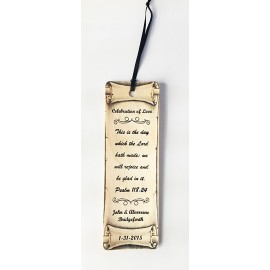 Celebration of Love
This is the day
which the Lord
hath made; we
will rejoice and
be glad in it.
Psalm 118:24
John &
Bridgeforth
1-31-2015